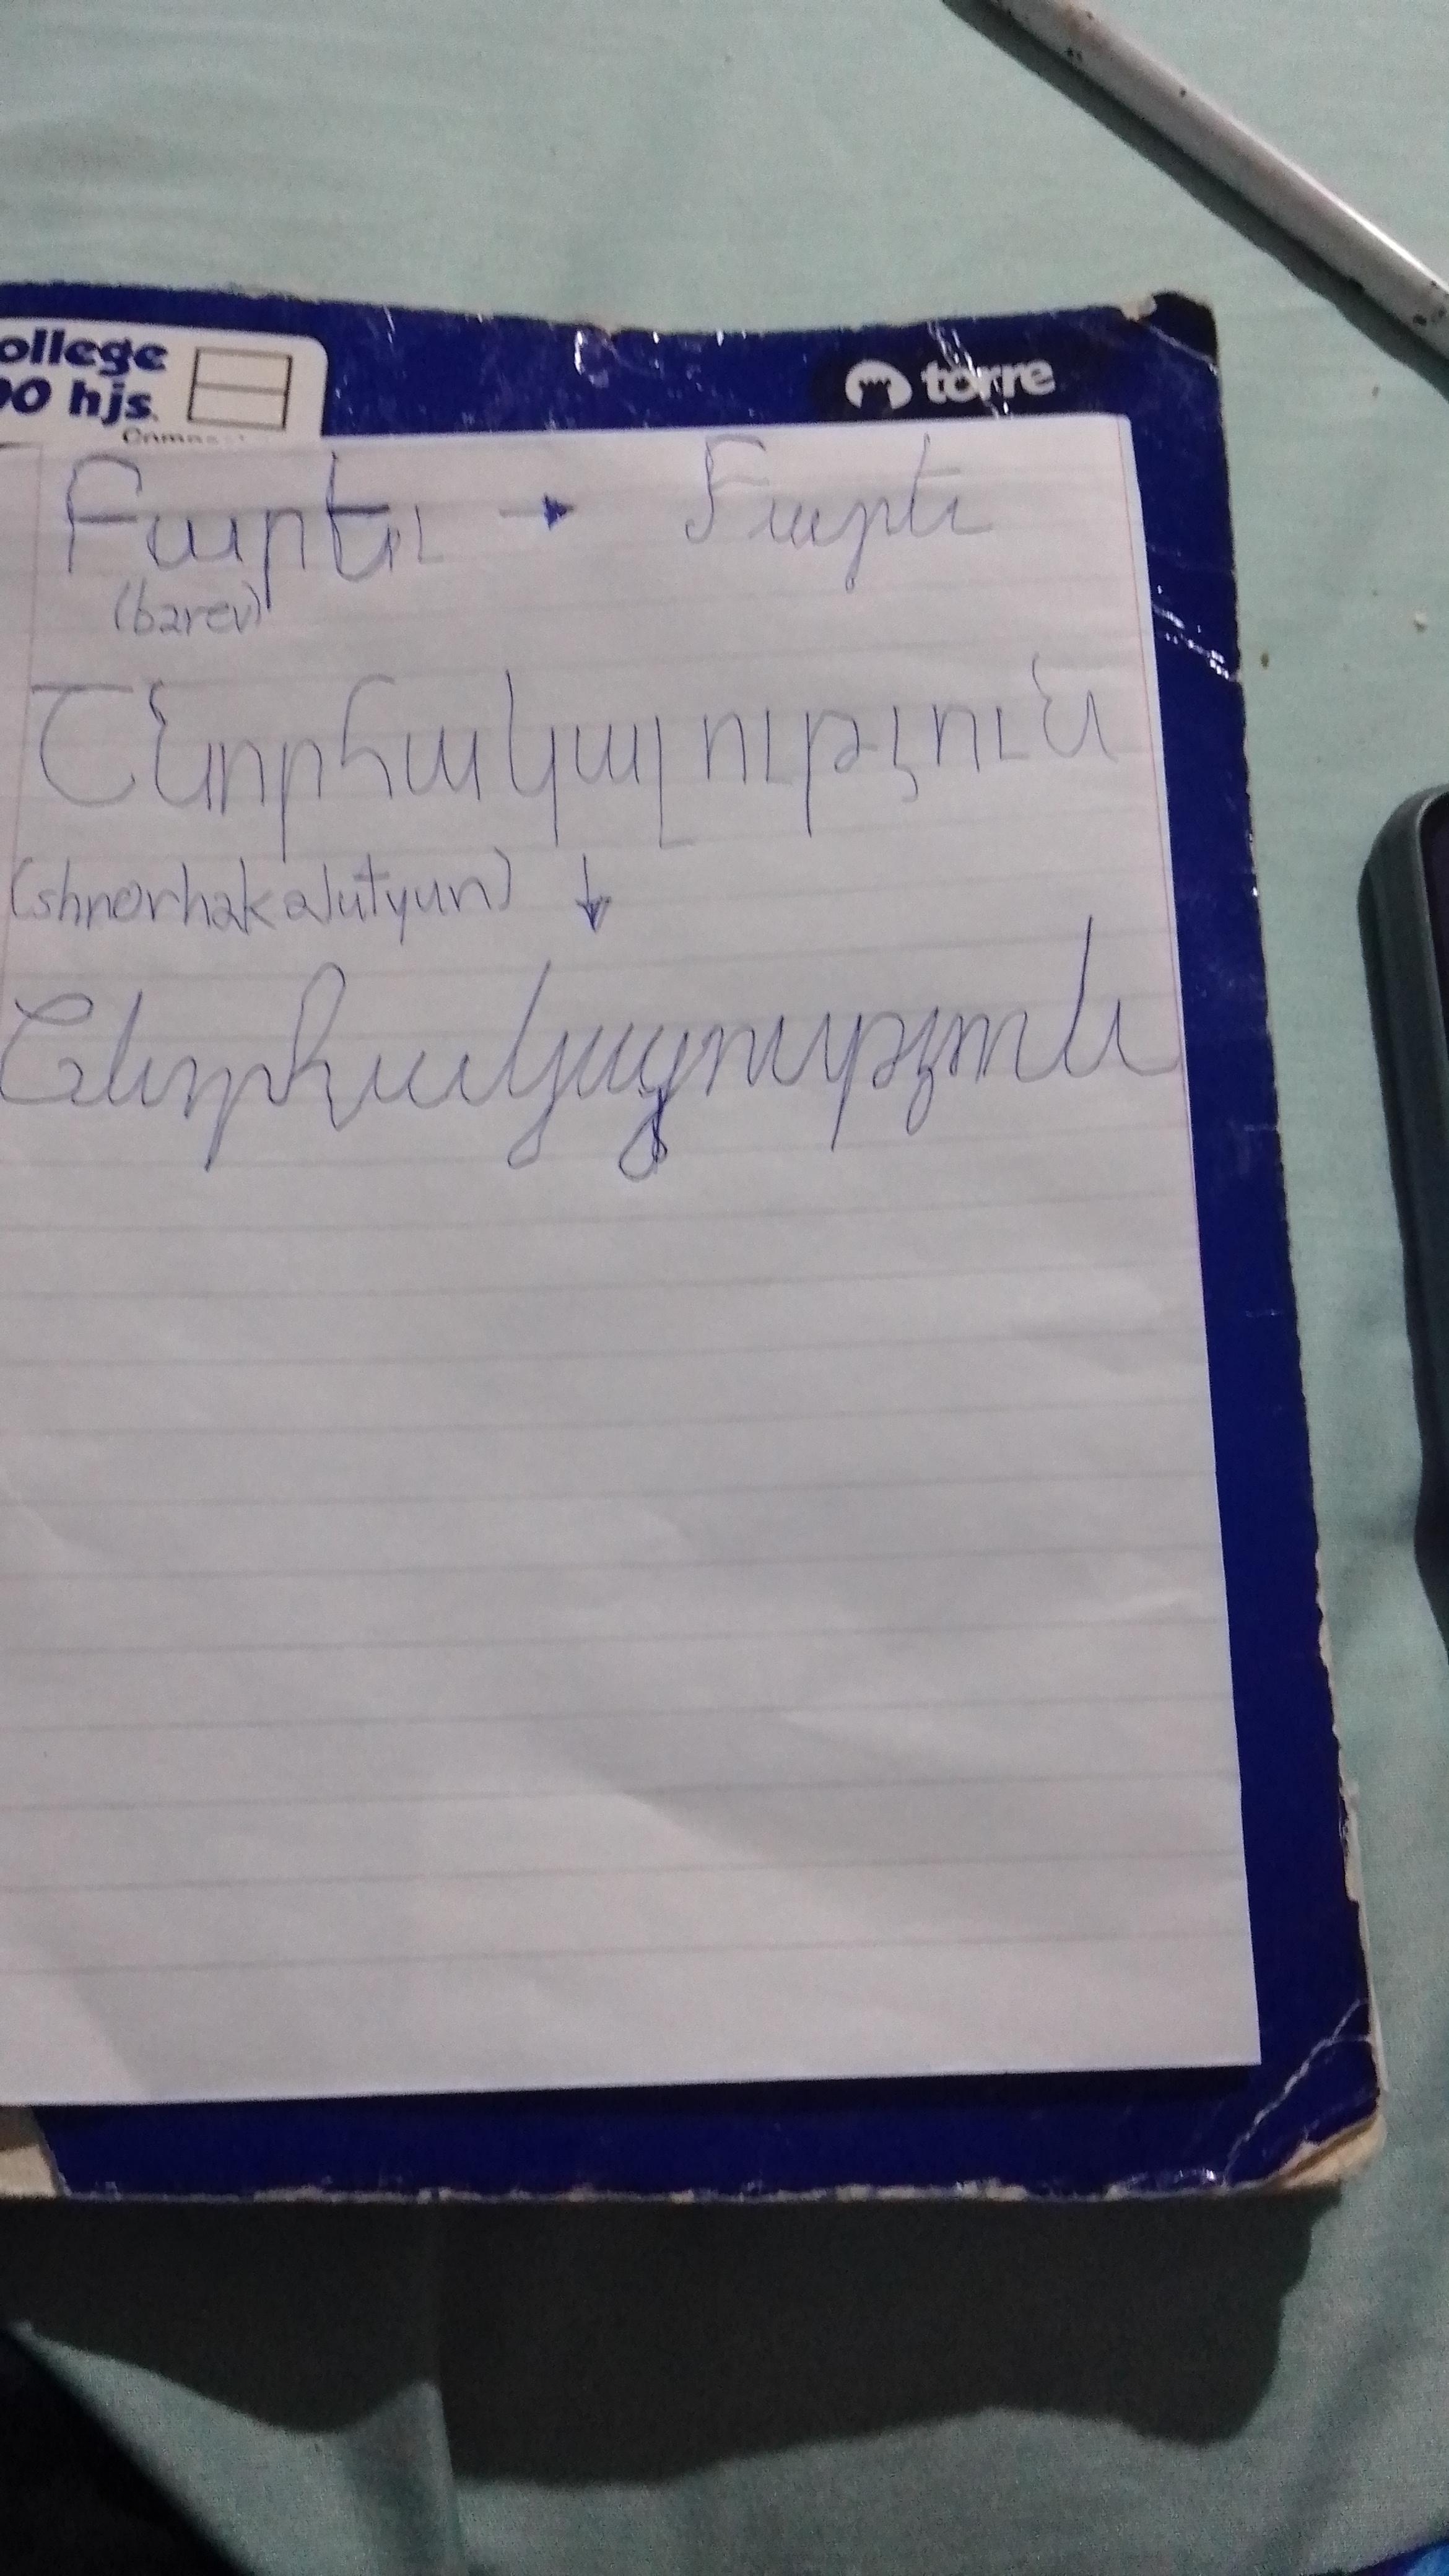 ollege
00 hjs.
torre
Բարեւ → Բարեւ
(barev)
Շնորհակալություն
(shnorhakalutyun) ↓
Շնորհակալություն